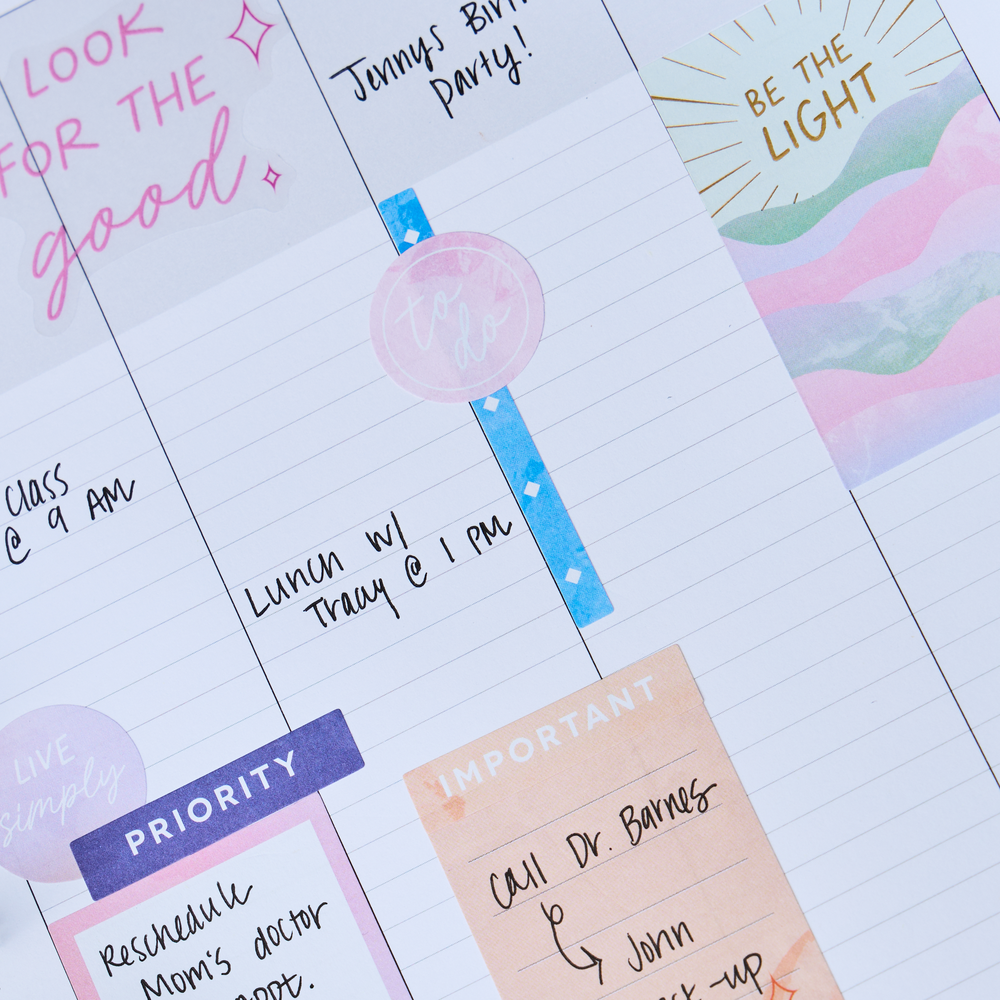 LOOK
FOR THE
good
Jennys
party!
BE THE
LIGHT
to
do
Class
@ 9 AM
Lunch w/
Tracy @ 1 PM
LIVE
simply
PRIORITY
Reschedule
Mom's doctor
IMPORTANT
call Dr. Barnes
John